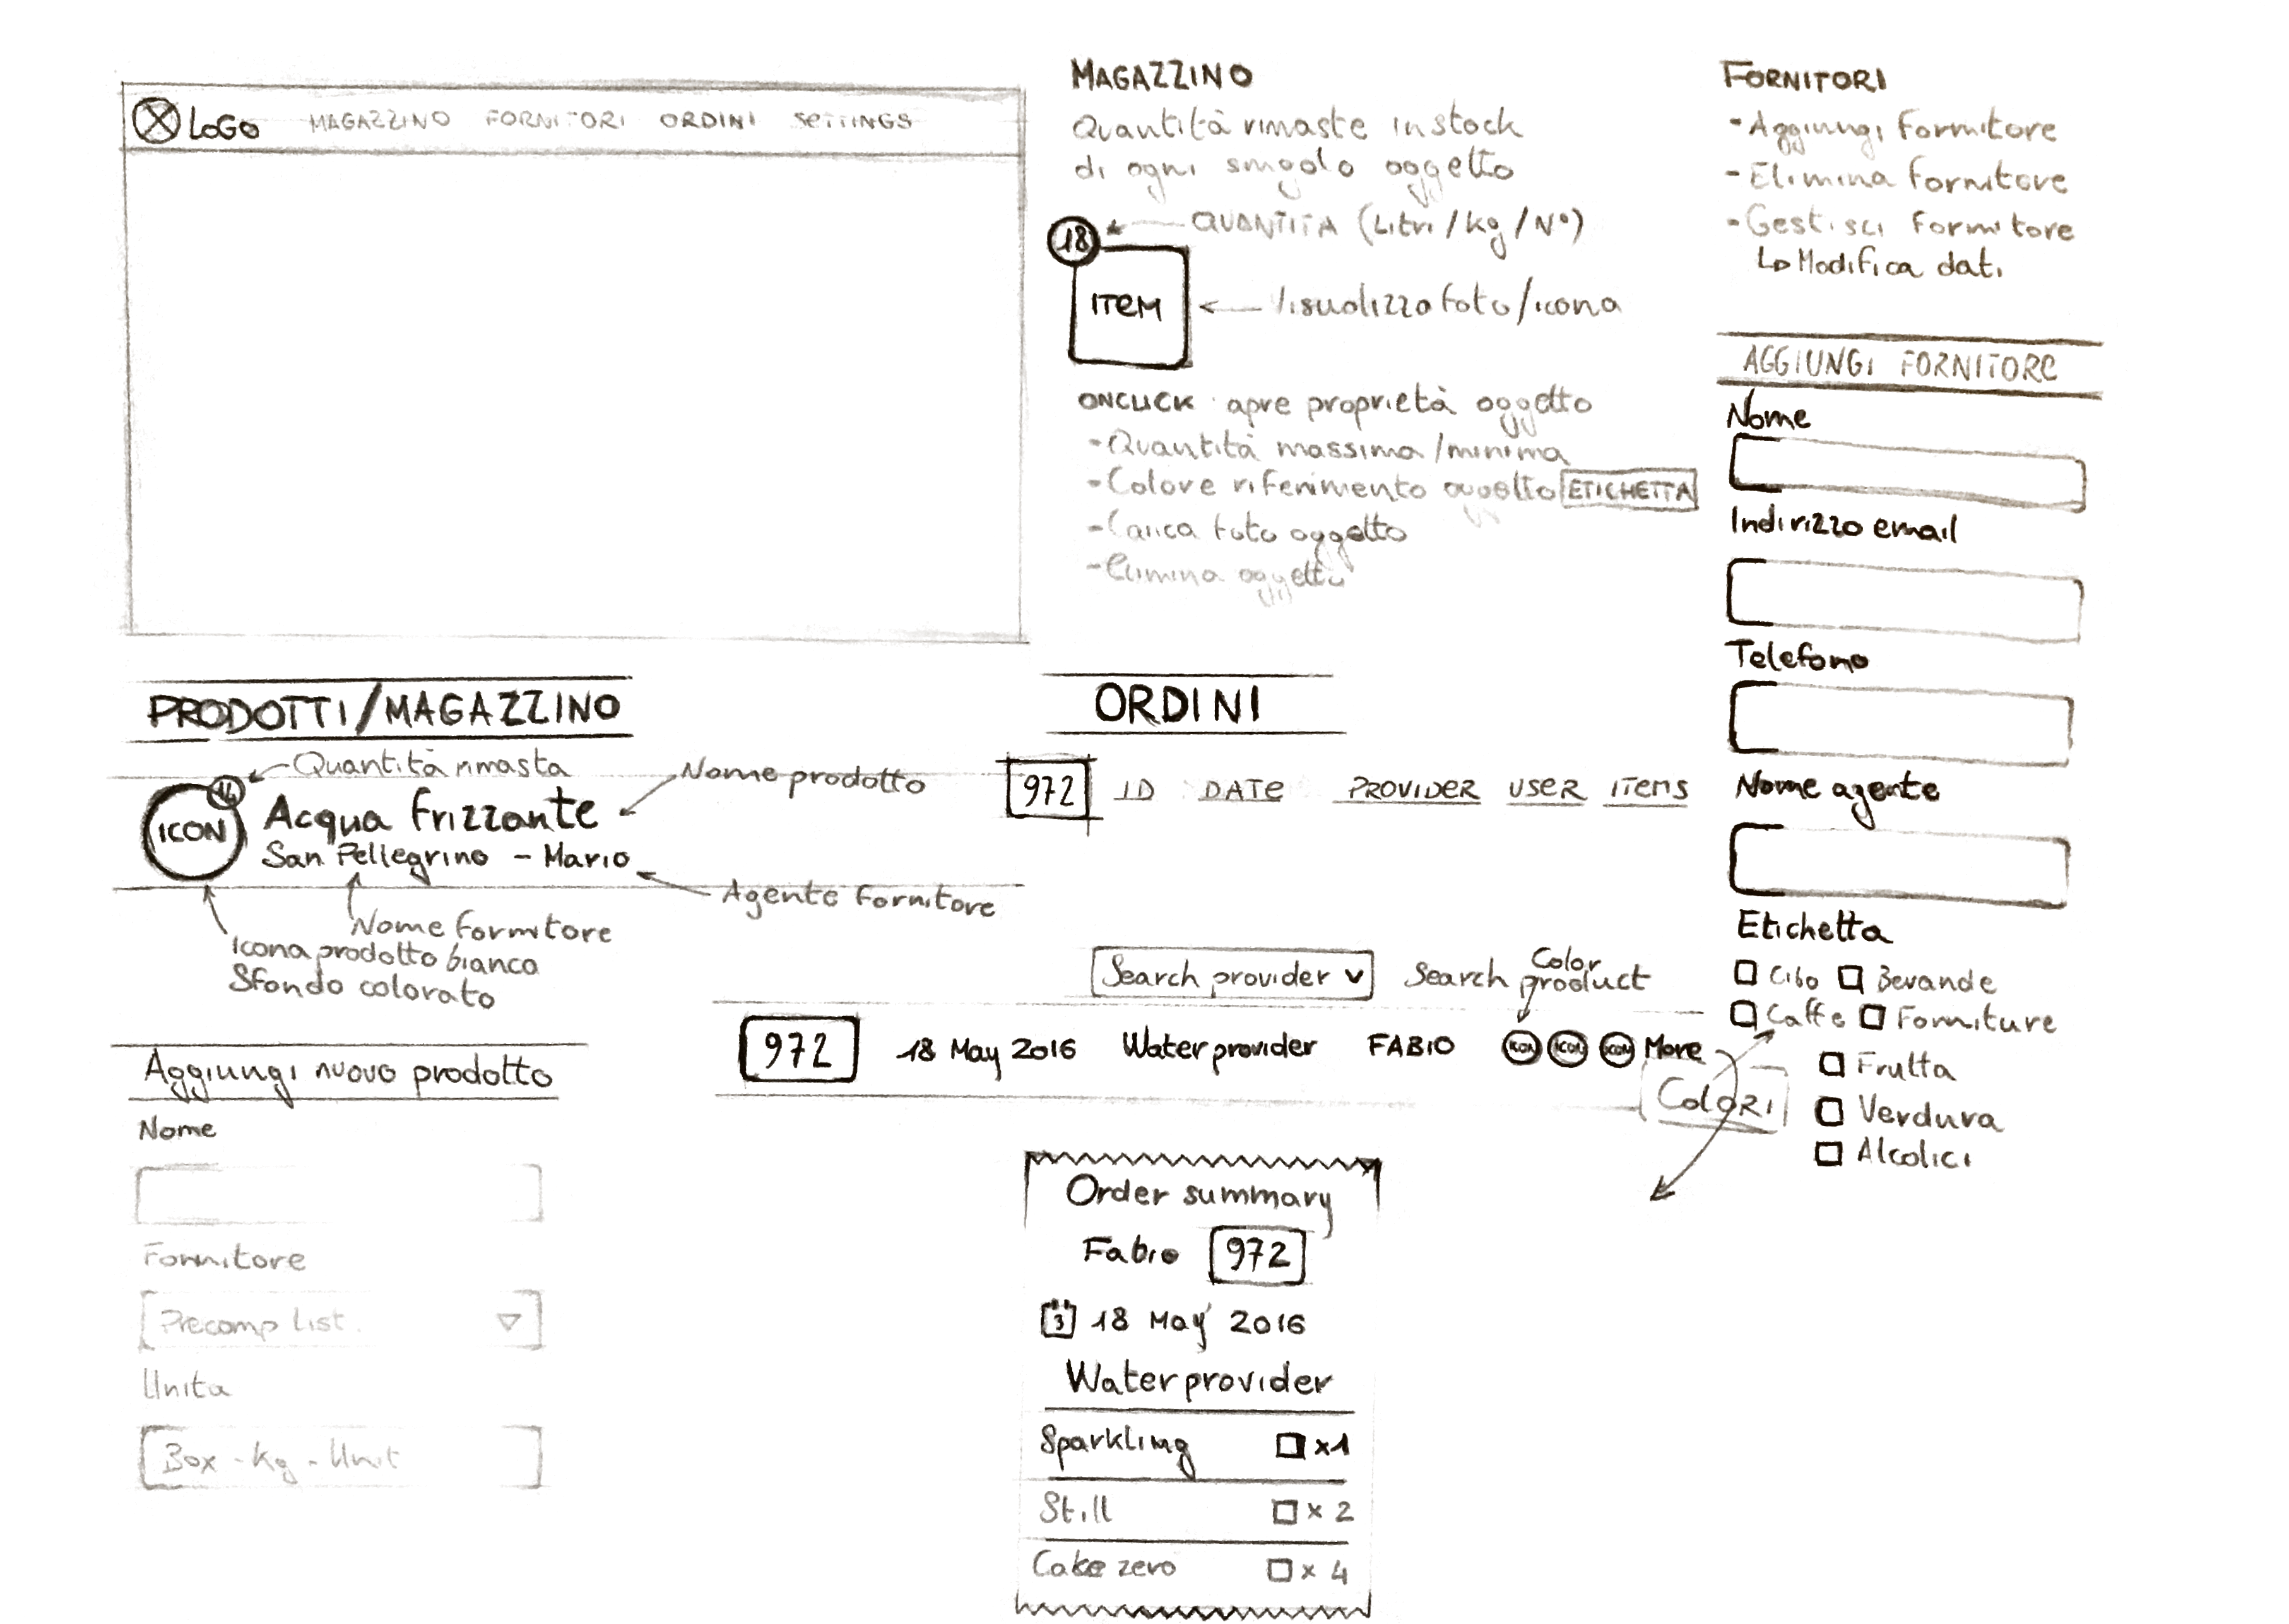 LOGO MAGAZZINO FORNITORI ORDINI SETTINGS
MAGAZZINO
Quantità rimaste in stock
di ogni singolo oggetto
18
QUANTITA (Litri/kg/N°)
ITEM
Visualizza foto/icona
ONCLICK apre proprietà oggetto
-Quantità massima/minima
-Colore riferimento oggetto ETICHETTA
-Carica foto oggetto
-Elimina oggetto
FORNITORI
-Aggiungi fornitore
-Elimina fornitore
-Gestisci fornitore
Modifica dati
AGGIUNGI FORNITORE
Nome
Indirizzo email
Telefono
Nome agente
Etichetta
Cibo Bevande
Caffe Forniture
Frutta
Verdura
Alcolici
PRODOTTI/MAGAZZINO
Quantità rimasta
Nome prodotto
ICON
Acqua frizzante
San Pellegrino - Mario
Agente fornitore
Nome fornitore
Icona prodotto bianco
Sfondo colorato
Aggiungi nuovo prodotto
Nome
Fornitore
Precomp list.
Unita
Box - Kg - Unit
ORDINI
972 ID DATE PROVIDER USER ITEMS
Search provider Search product
Color
972 18 May 2016 Water provider FABIO ICON ICON ICON More
COLORI
Order summary
Fabio 972
3 18 May 2016
Water provider
Sparkling x1
Still x 2
Coke zero x 4